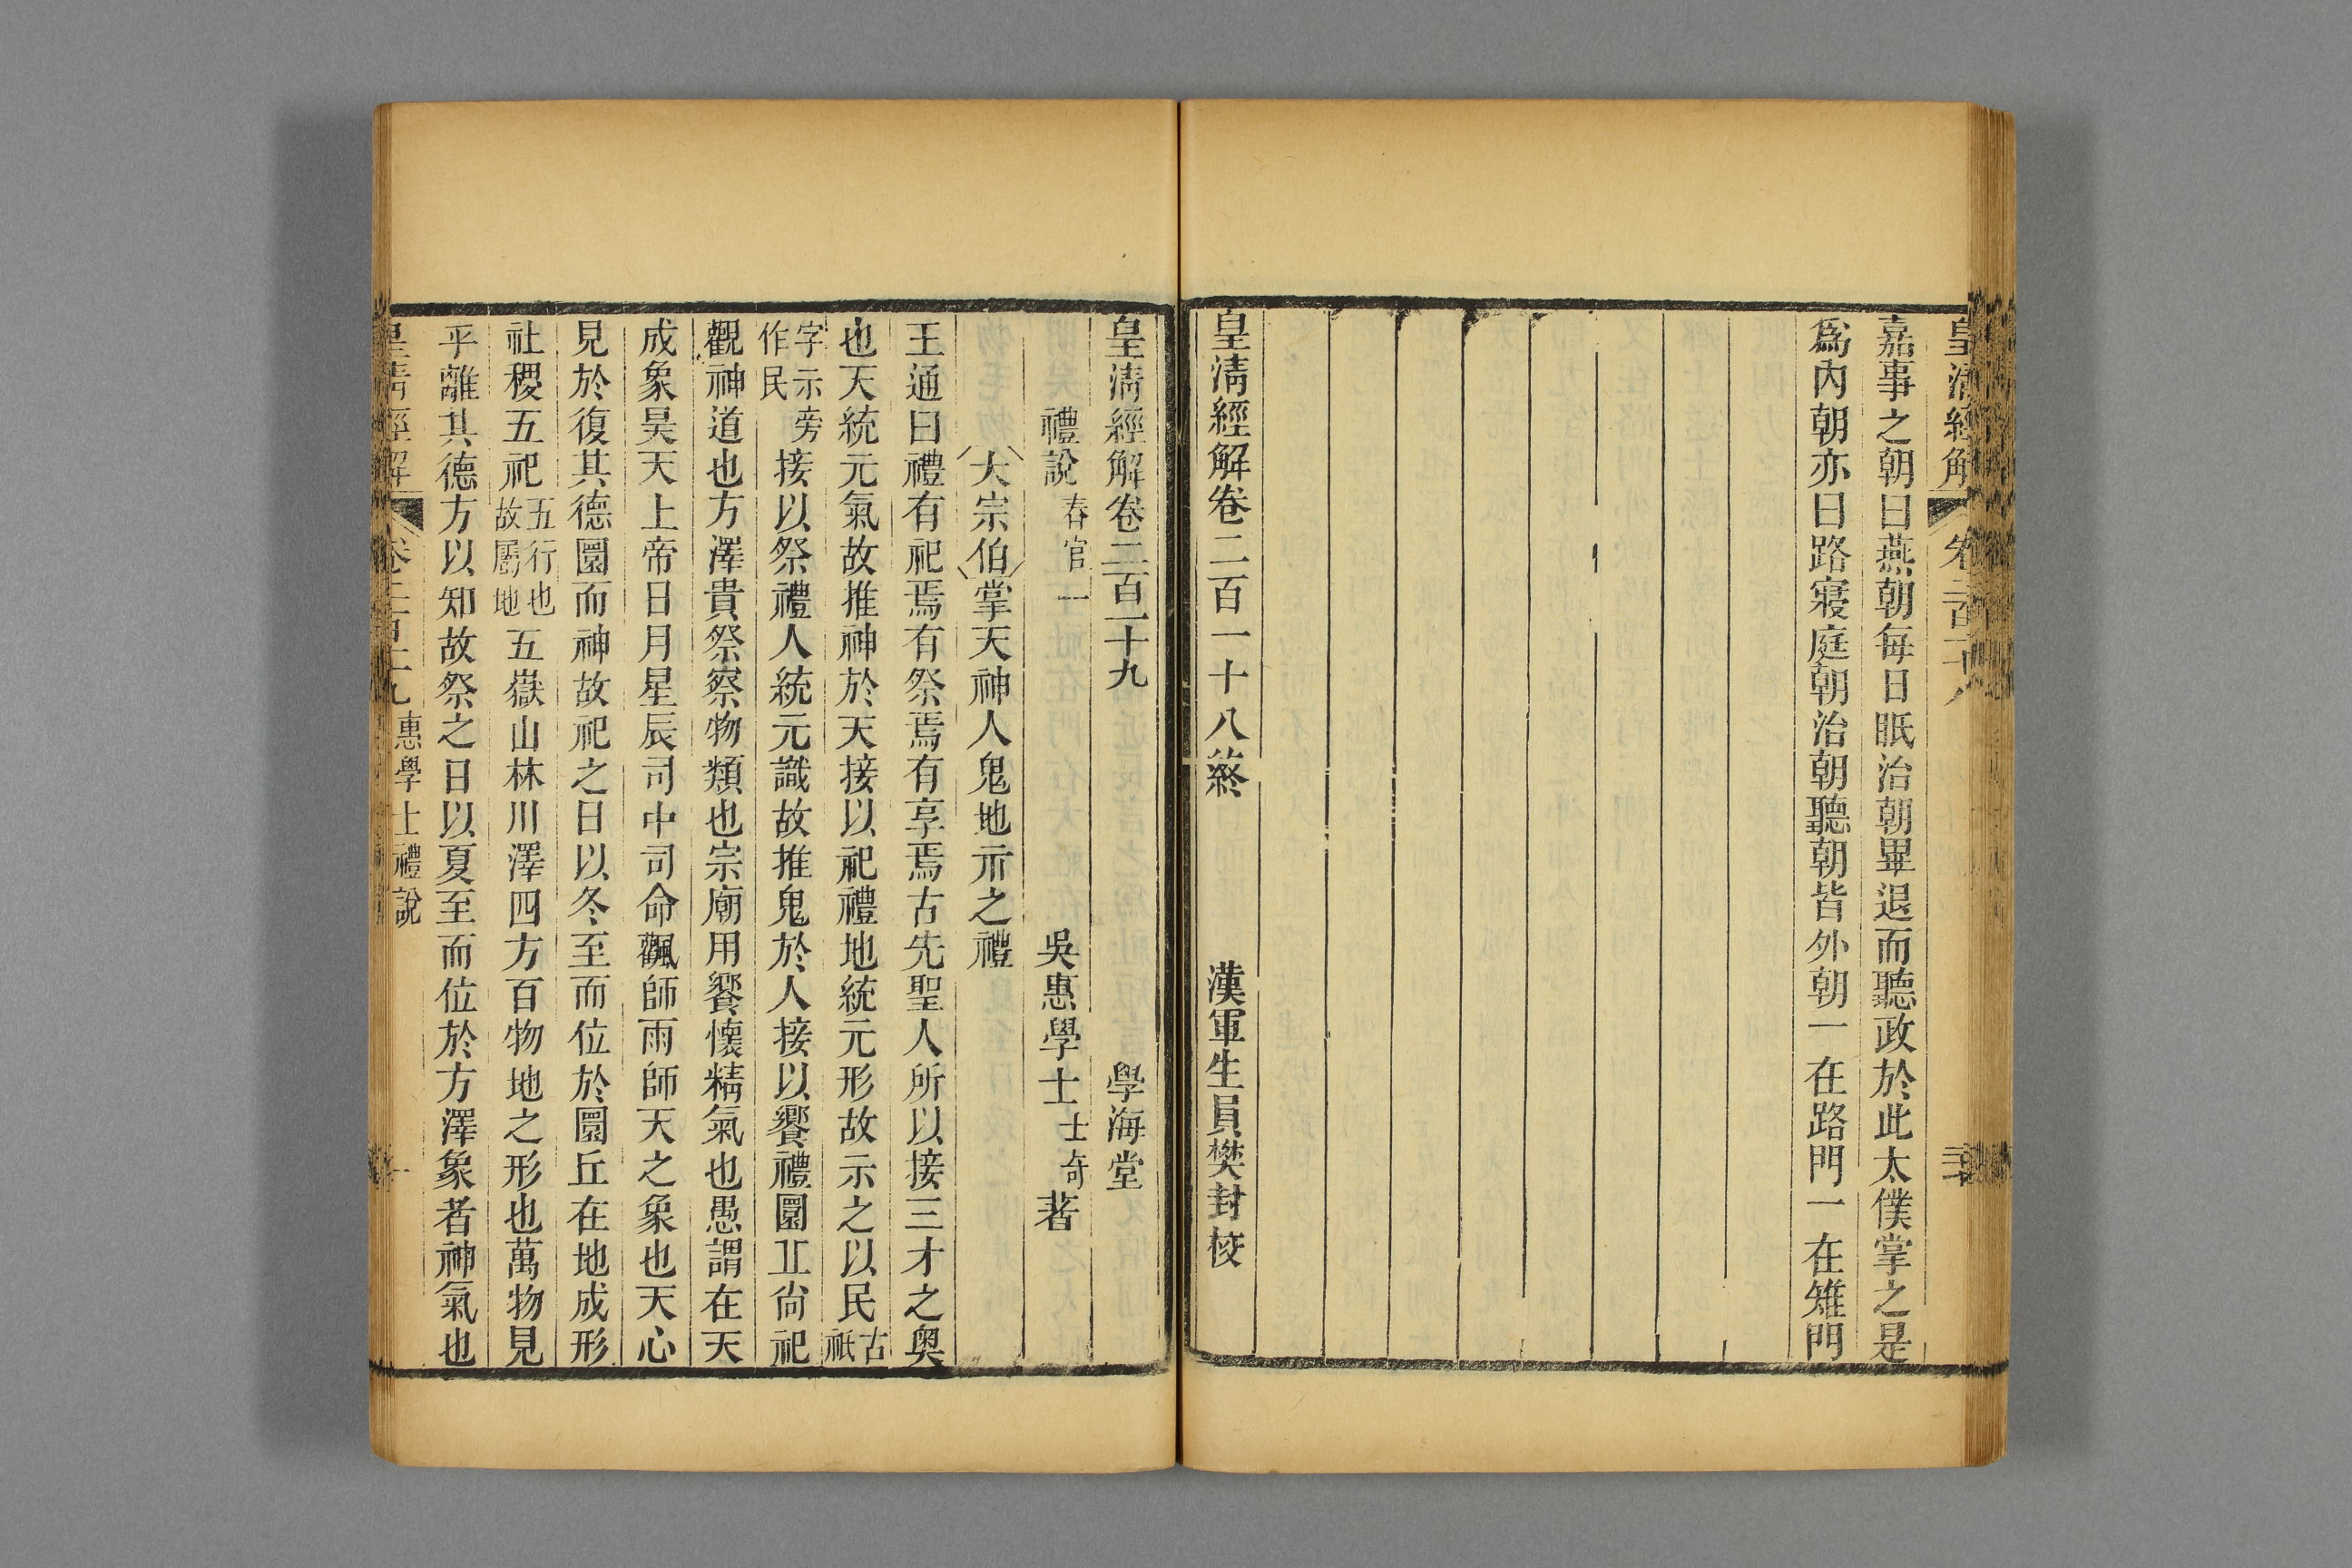 皇清經解 卷二百一十八
嘉事之朝曰燕朝每日眡治朝畢退而聽政於此太僕掌之是
爲內朝亦曰路寢庭朝治朝聽朝皆外朝一在路門一在雉門
皇清經解卷二百一十八終 漢軍生員樊封校
皇清經解卷二百一十九 學海堂
禮說春官一 吳惠學士士奇著
大宗伯掌天神人鬼地示之禮
王通曰禮有祀焉有祭焉有享焉古先聖人所以接三才之奧
也天統元氣故推神於天接以祀禮地統元形故示之以民古祇
字示旁作民接以祭禮人統元識故推鬼於人接以饗禮圜丠尙祀
觀神道也方澤貴祭察物類也宗廟用饗懷精氣也愚謂在天
成象昊天上帝日月星辰司中司命飌師雨師天之象也天心
見於復其德圜而神故祀之日以冬至而位於圜丘在地成形
社稷五祀五行也故屬地五嶽山林川澤四方百物地之形也萬物見
乎離其德方以知故祭之日以夏至而位於方澤象者神氣也
皇清經解 卷二百一十九 惠學士禮說 一